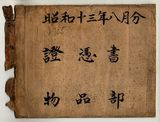 昭和十三年八月分
證憑書
物品部